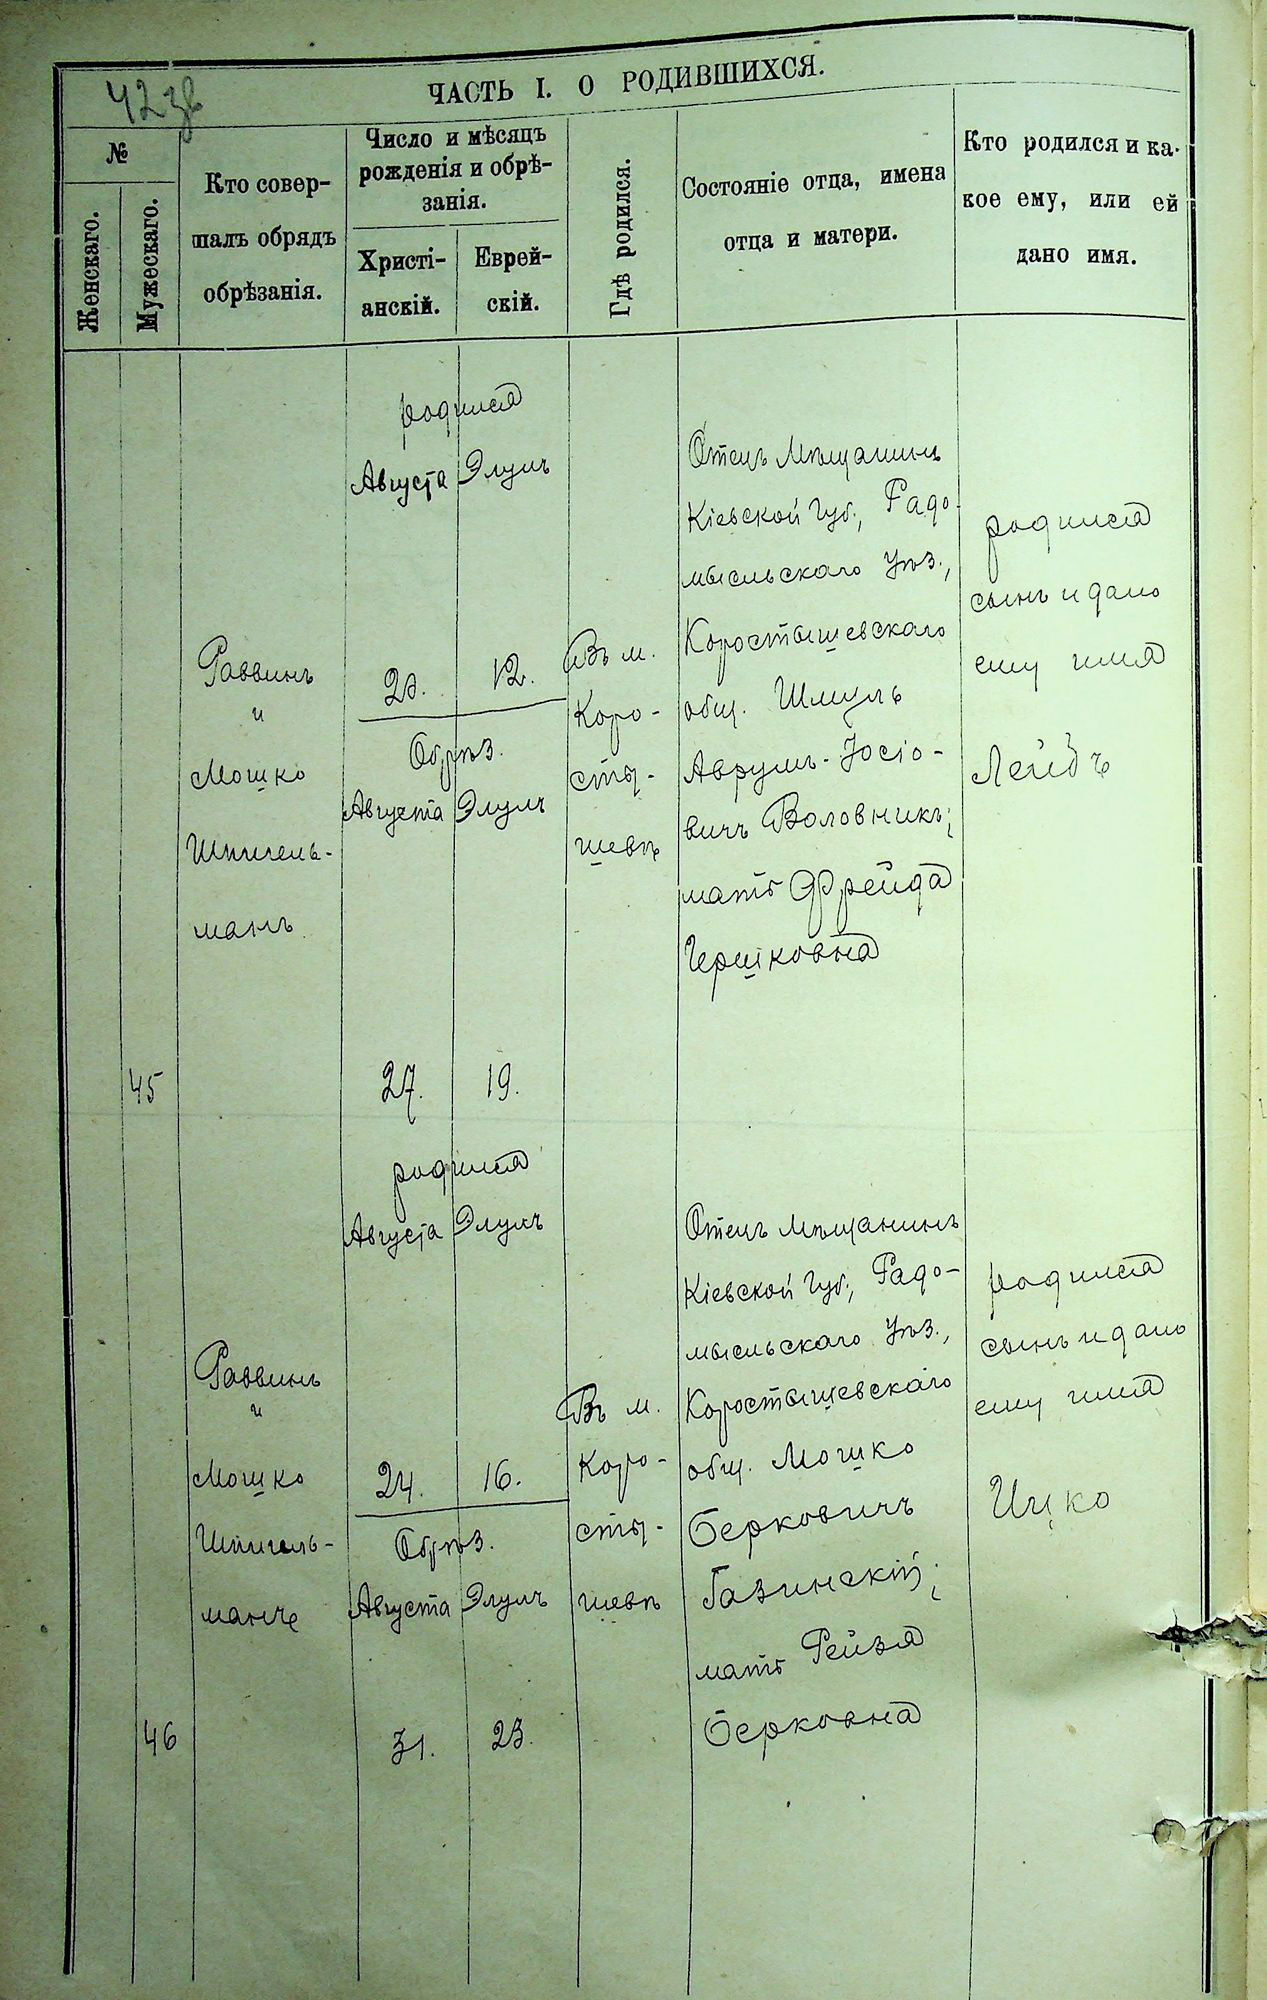 42 зв
ЧАСТЬ I. О РОДИВШИХСЯ.
№
Женскаго.
Мужескаго.
Кто совер-
шалъ обрядъ
обрѣзанія.
Число и мѣсяцъ
рожденія и обрѣ-
занія.
Христі-
анскій.
Еврей-
скій.
Гдѣ родился.
Состояніе отца, имена
отца и матери.
Кто родился и ка-
кое ему, или ей
дано имя.
45
Раввинъ
и
Мошко
Шпигель-
манъ
родился
Августа Элулъ
20. 12.
Обрѣз.
Августа Элулъ
27. 19.
Въ м.
Коро-
сты-
шевѣ
Отецъ Мѣщанинъ
Кіевской Губ., Радо-
мысльскаго Уѣз.,
Коростышевскаго
общ. Шмуль
Аврумъ-Іосіо-
вичъ Воловникъ;
мать Фрейда
Гершковна
родился
сынъ и дано
ему имя
Лейбъ
46
Раввинъ
и
Мошко
Шпигель-
манъ
родился
Августа Элулъ
24. 16.
Обрѣз.
Августа Элулъ
31. 23.
Въ м.
Коро-
сты-
шевѣ
Отецъ Мѣщанинъ
Кіевской Губ., Радо-
мысльскаго Уѣз.,
Коростышевскаго
общ. Мошко
Берковичъ
Газинскій;
мать Рейзя
Берковна
родился
сынъ и дано
ему имя
Ицко